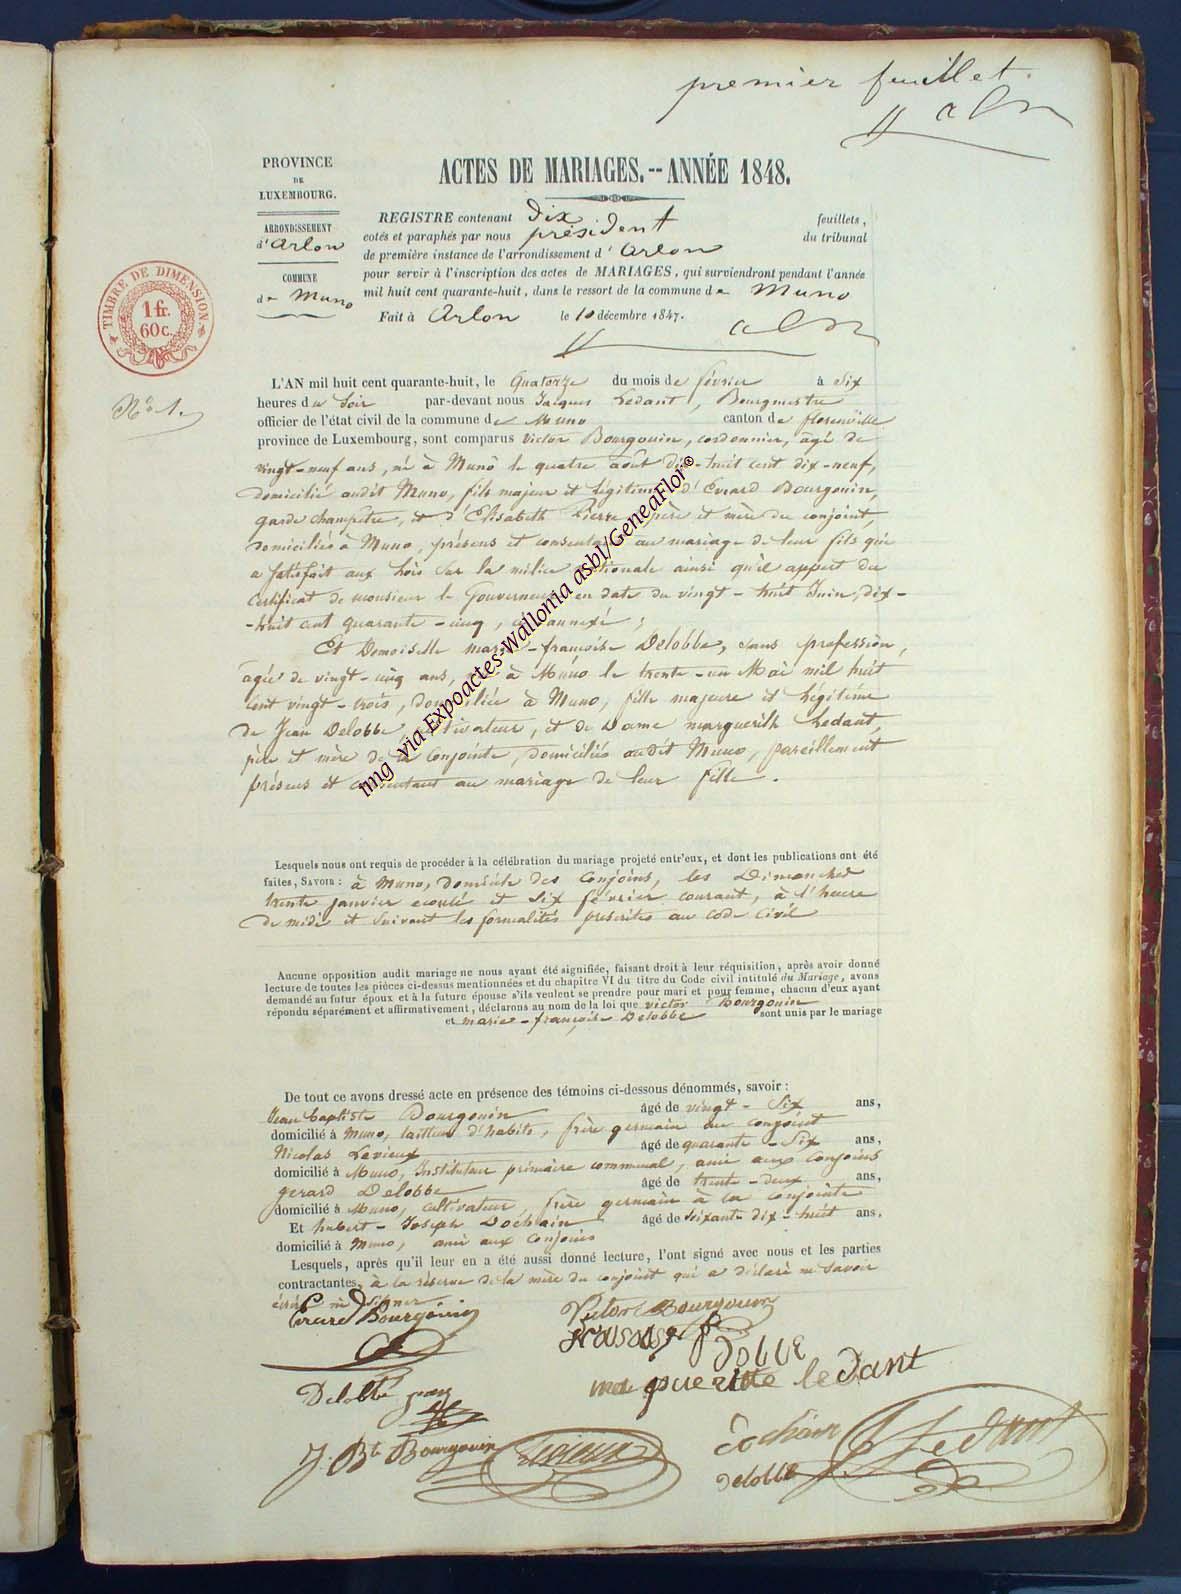 premier feuillet.
PROVINCE
DE
LUXEMBOURG.
ARRONDISSEMENT
d'Arlon
COMMUNE
de Muno
TIMBRE DE DIMENSION
1 fr.
60 c.
ACTES DE MARIAGES.--ANNÉE 1848.
REGISTRE contenant Dix feuillets,
cotés et paraphés par nous président du tribunal
de première instance de l'arrondissement d'Arlon
pour servir à l'inscription des actes de MARIAGES, qui surviendront pendant l'année
mil huit cent quarante-huit, dans le ressort de la commune de Muno
Fait à Arlon le 10 décembre 1847.
No 1.
L'AN mil huit cent quarante-huit, le Quatorze du mois de février à Six
heures du Soir par-devant nous Jacques Ledant, Bourgmestre
officier de l'état civil de la commune de Muno canton de florenville
province de Luxembourg, sont comparus Victor Bourgouin, cordonnier, âgé de
vingt-neuf ans, né à Muno le quatre août dix-huit cent dix-neuf,
domicilié audit Muno, fils majeur et légitime d'Evrard Bourgouin,
garde champêtre, et d'Elisabeth Pierre père et mère du conjoint,
domiciliés à Muno, présens et consentans au mariage de leur fils qui
a satisfait aux lois sur la milice nationale ainsi qu'il appert du
certificat de monsieur le Gouverneur en date du vingt-huit Juin, dix-
-huit cent quarante-cinq, ci annexé ;
Et Demoiselle marie-françoise Delobbe, sans profession,
âgée de vingt-cinq ans, née à Muno le trente-un Mai mil huit
cent vingt-trois, domiciliée à Muno, fille majeure et légitime
de Jean Delobbe, cultivateur, et de Dame marguerite Ledant,
père et mère de la conjointe, domiciliés audit Muno, pareillement
présens et consentant au mariage de leur fille.
img via Expoactes-Wallonia asbl/GeneaFlor©
Lesquels nous ont requis de procéder à la célébration du mariage projeté entr'eux, et dont les publications ont été
faites, SAVOIR : à Muno, domicile des conjoins, les Dimanches
trente janvier écoulé et six février courant, à l'heure
de midi et suivant les formalités prescrites au code civil
Aucune opposition audit mariage ne nous ayant été signifiée, faisant droit à leur réquisition, après avoir donné
lecture de toutes les pièces ci-dessus mentionnées et du chapitre VI du titre du Code civil intitulé du Mariage, avons
demandé au futur époux et à la future épouse s'ils veulent se prendre pour mari et pour femme, chacun d'eux ayant
répondu séparément et affirmativement, déclarons au nom de la loi que victor Bourgouin
et marie-françoise Delobbe sont unis par le mariage
De tout ce avons dressé acte en présence des témoins ci-dessous dénommés, savoir :
Jean baptiste Bourgouin âgé de vingt-six ans,
domicilié à Muno, tailleur d'habits, frère germain du conjoint
Nicolas Levieux âgé de quarante-six ans,
domicilié à Muno, Instituteur primaire communal, ami aux conjoins
gerard Delobbe âgé de trente-deux ans,
domicilié à Muno, cultivateur, frère germain à la conjointe
Et hubert-Joseph Dochain âgé de soixante dix-huit ans.
domicilié à Muno, ami aux conjoins
Lesquels, après qu'il leur en a été aussi donné lecture, l'ont signé avec nous et les parties
contractantes, à la réserve de la mère du conjoint qui a déclaré ne savoir
écrire ni signer
Evrard Bourgouin
Victor Bourgouin
fransoise
Delobbe
Delobbe jean
marguerite ledant
J. Bte Bourgouin
Levieux
dochain
J Ledant
delobbe